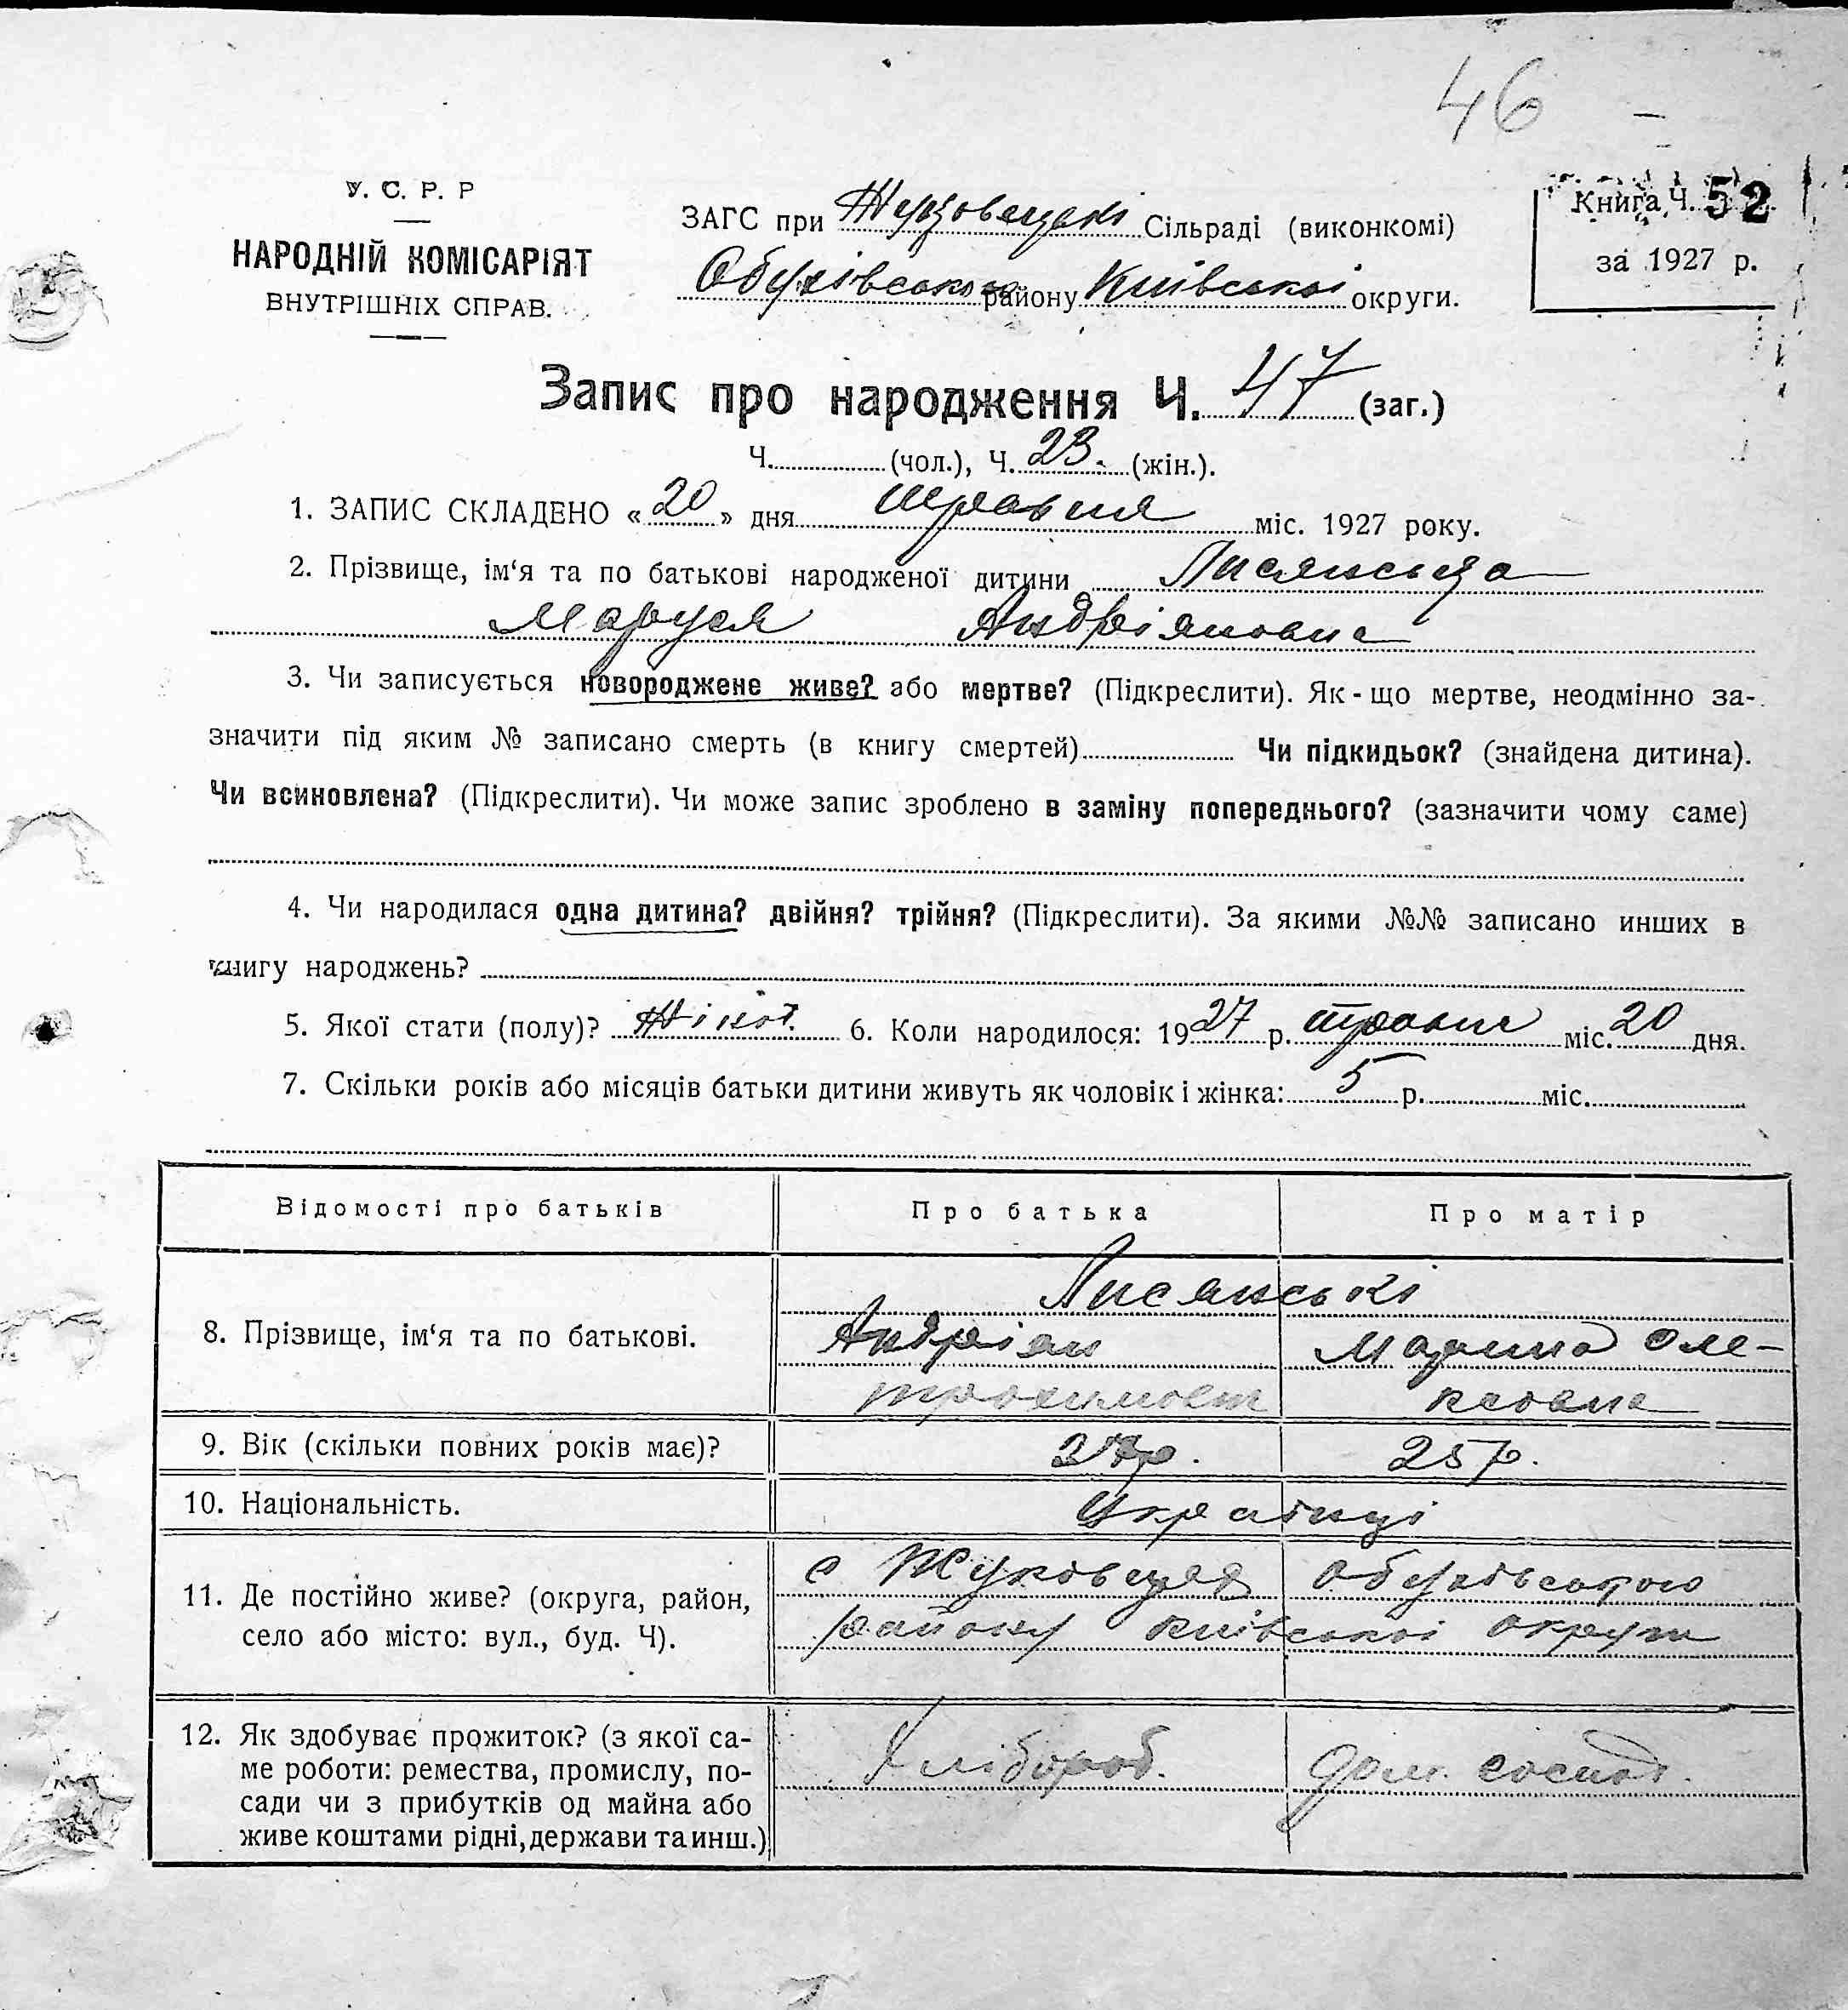 46
У. С. Р. Р
НАРОДНІЙ КОМІСАРІЯТ
ВНУТРІШНІХ СПРАВ.
ЗАГС при Сільраді (виконкомі)
Обухівського району Київської округи.
Книга Ч. 52
за 1927 р.
Запис про народження Ч. 47 (заг.)
Ч. (чол.), Ч. 23. (жін.).
1. ЗАПИС СКЛАДЕНО « 20 » дня травня міс. 1927 року.
2. Прізвище, ім‘я та по батькові народженої дитини Лисянська
Маруся Андріяновна
3. Чи записується новороджене живе? або мертве? (Підкреслити). Як - що мертве, неодмінно за-
значити під яким № записано смерть (в книгу смертей) Чи підкидьок? (знайдена дитина).
Чи всиновлена? (Підкреслити). Чи може запис зроблено в заміну попереднього? (зазначити чому саме)
4. Чи народилася одна дитина? двійня? трійня? (Підкреслити). За якими №№ записано инших в
книгу народжень?
5. Якої стати (полу)? Жіноч. 6. Коли народилося: 1927 р. травня міс. 20 дня.
7. Скільки років або місяців батьки дитини живуть як чоловік і жінка: 5 р. міс.
Відомості про батьків Про батька Про матір
8. Прізвище, ім‘я та по батькові.
Лисянські
Андріян Марина Оле-
Трохимович ксовна
9. Вік (скільки повних років має)? 25 р.
10. Національність. Українці
11. Де постійно живе? (округа, район,
село або місто: вул., буд. Ч).
с Жуковцях Обухівського
району Київської округи
12. Як здобуває прожиток? (з якої са-
ме роботи: ремества, промислу, по-
сади чи з прибутків од майна або
живе коштами рідні, держави та инш.)
Хлібороб. дом. господ.